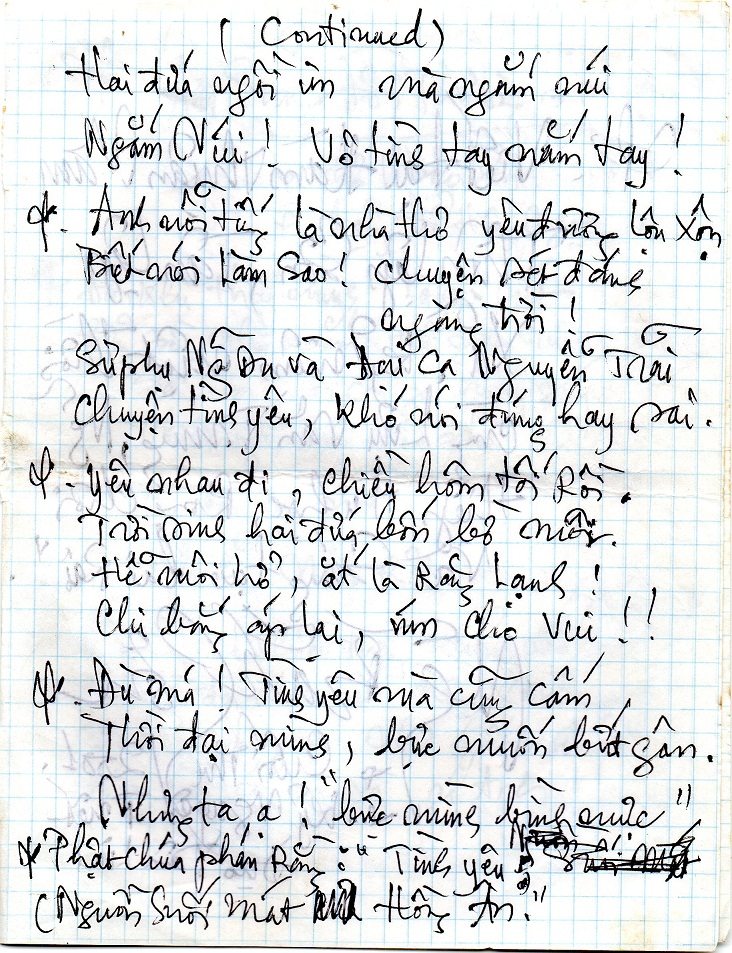 (Continued)
Hai đứa ngồi ỉn mà ngắm núi
Ngắm Núi! Vô tình tay nắm tay!
Anh nổi tiếng là nhà thơ yêu đương lộn xộn
Biết nói làm sao! Chuyện sét đánh
ngang trời!
Sư phụ Ng Du và Đại Ca Nguyễn Trãi
Chuyện tình yêu, khó nói đúng hay sai.
- Yêu nhau đi, chiều hôm tối rồi.
Trời sinh hai đứa bốn bờ môi.
Hễ môi hở, ắt là răng lạnh!
Chi bằng áp lại, mím cho vui!!
. Đù má! Tình yêu mà cũng cấm
Thời đại mình, bực muốn bứt gân.
Nhưng ta ạ! "bực mình bình mực"
Phật chúa phán rằng: "Tình yêu
(Nguồn suối mát Hồng Ân."